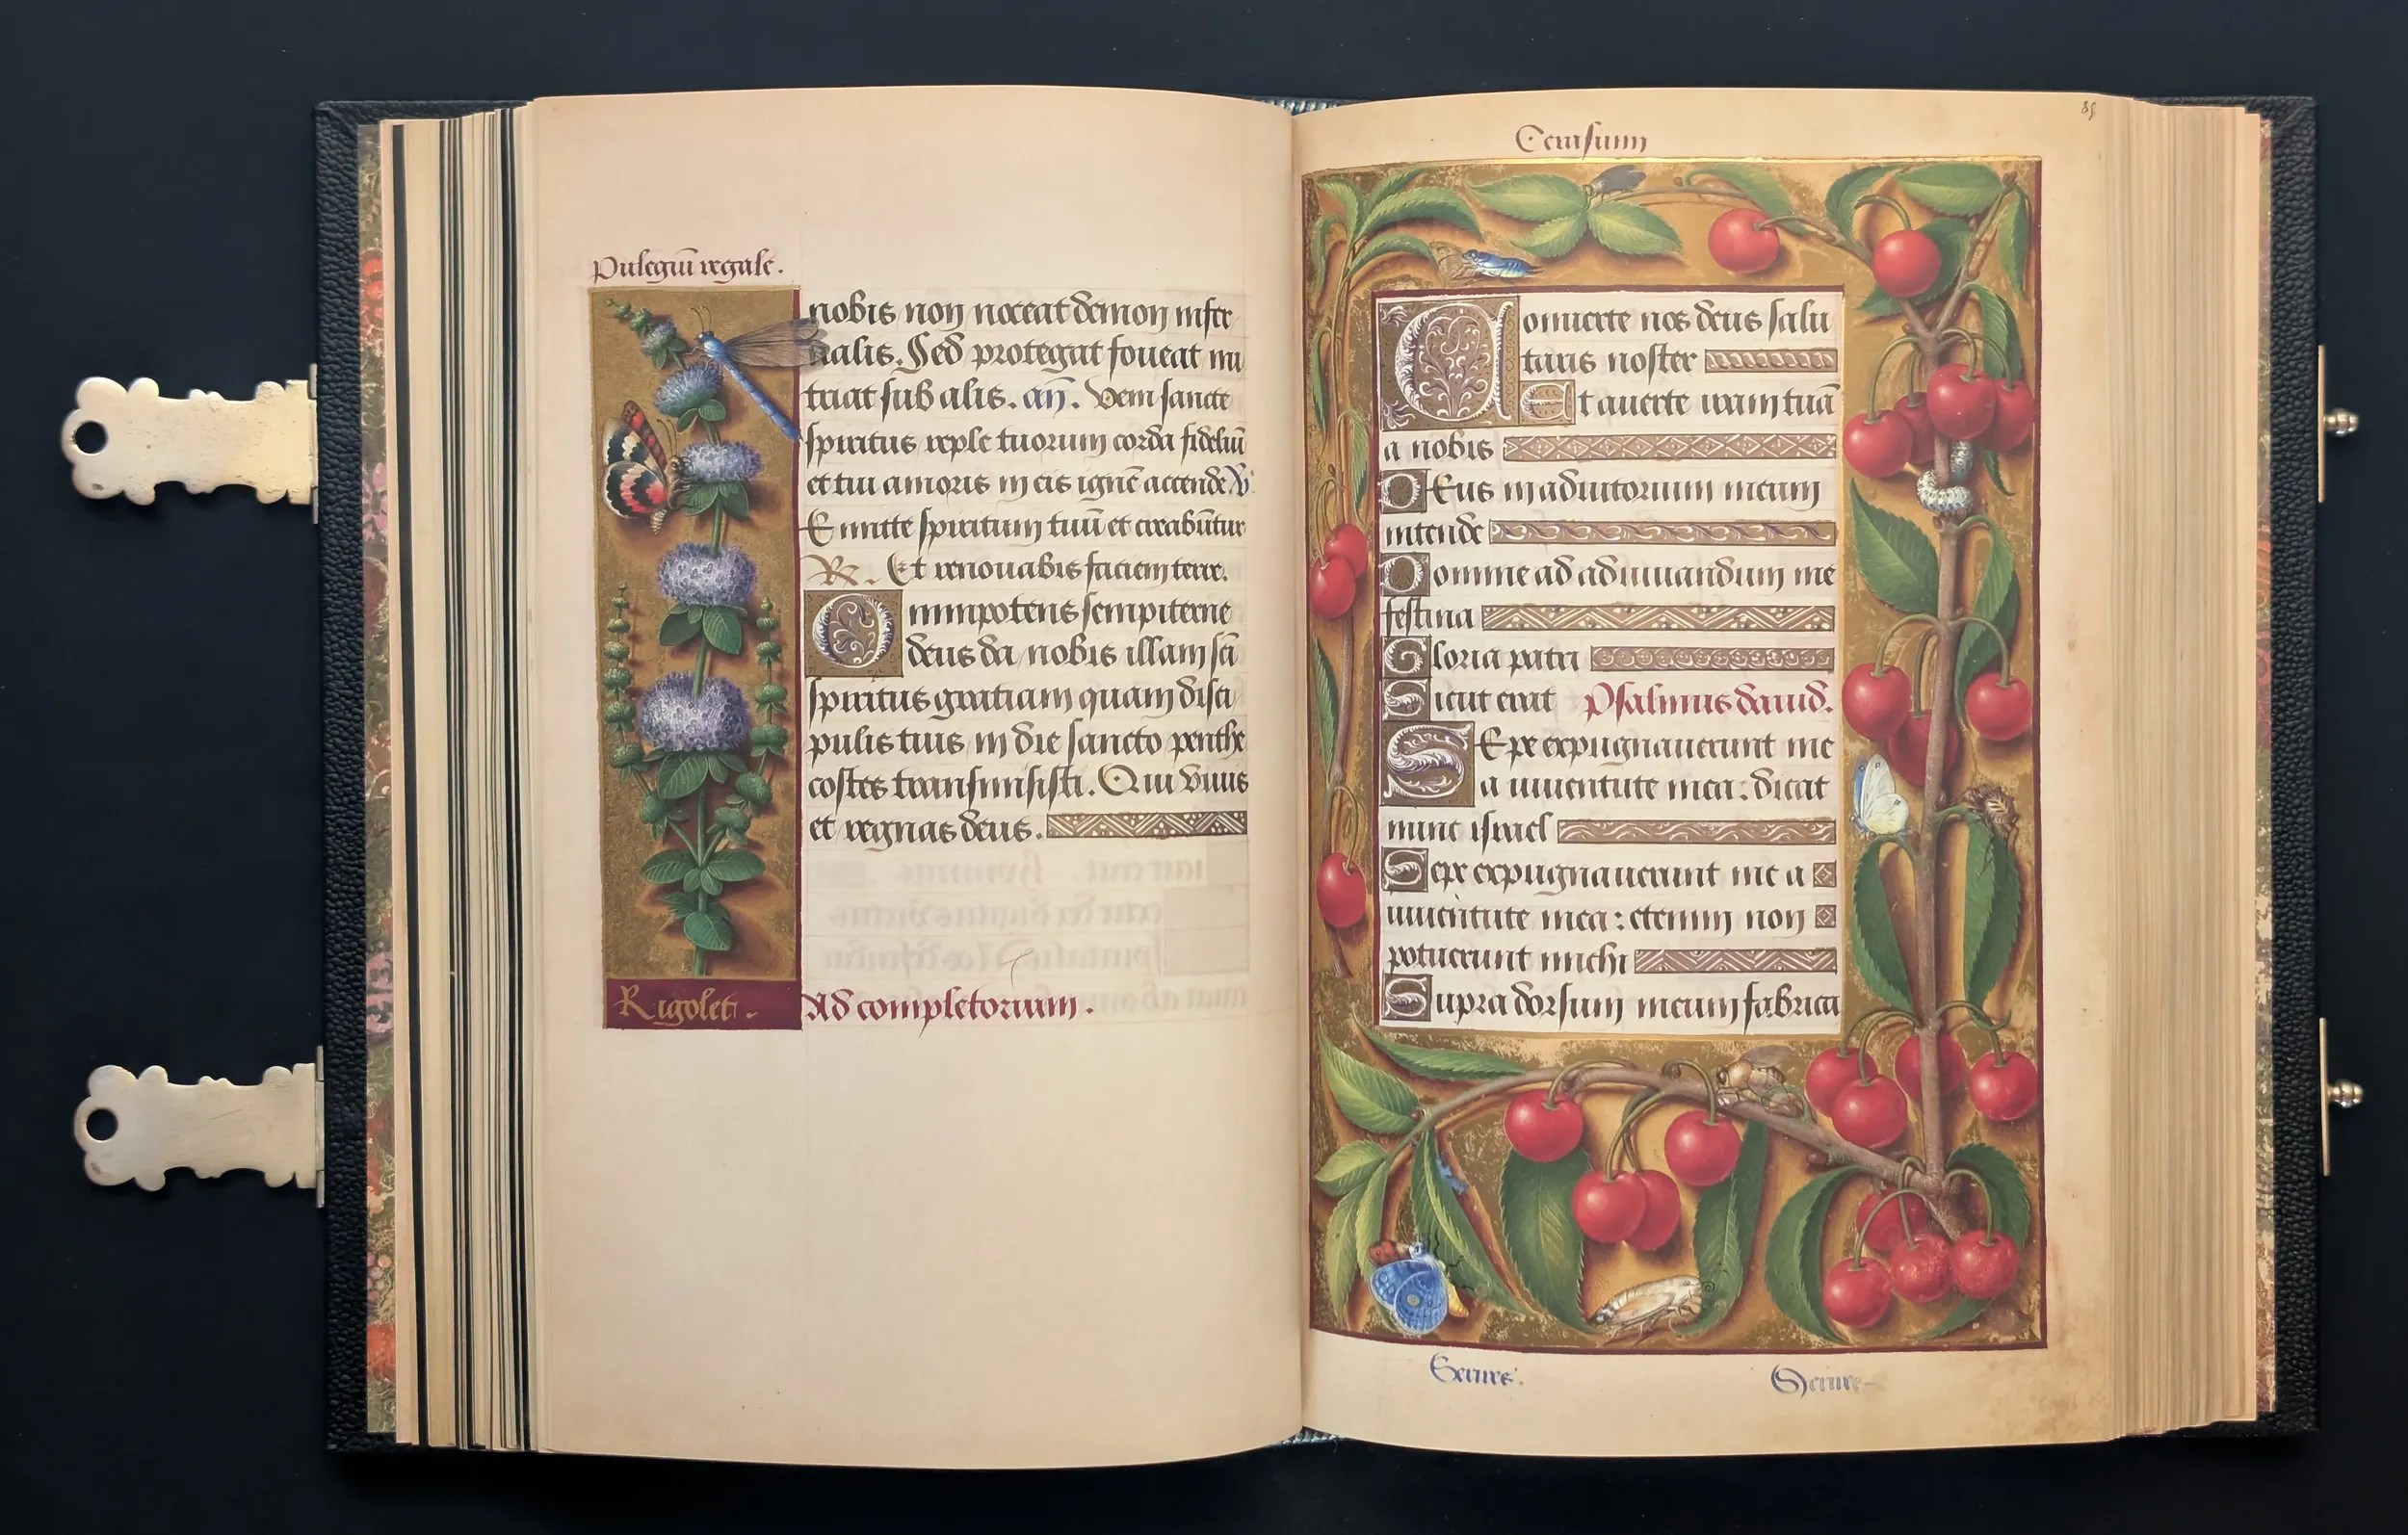 Pulegiū regale.
nobis non noceat demon infer
nalis. Sed protegat foveat nu
triat sub alis. an̄. Veni sancte
spiritus reple tuorum corda fideliū
et tui amoris in eis ignē accende V̄
Emitte spiritum tuū et creabūtur
R. Et renovabis faciem terre.
Omnipotens sempiterne
deus da nobis illam sc̄i
spiritus gratiam quam disci
pulis tuis in die sancto penthe
costes transmisisti. Qui vivis
et regnas deus.
Rigolet. Ad completorium.
85
Cerasium
Converte nos deus salu
taris noster
Et averte iram tuā
a nobis
Deus in adiutorium meum
intende
Domine ad adiuvandum me
festina
Gloria patri
Sicut erat Psalmus david.
Sepe expugnaverunt me
a iuventute mea: dicat
nunc israel
Sepe expugnaverunt me a
iuventute mea: etenim non
potuerunt michi
Supra dorsum meum fabrica